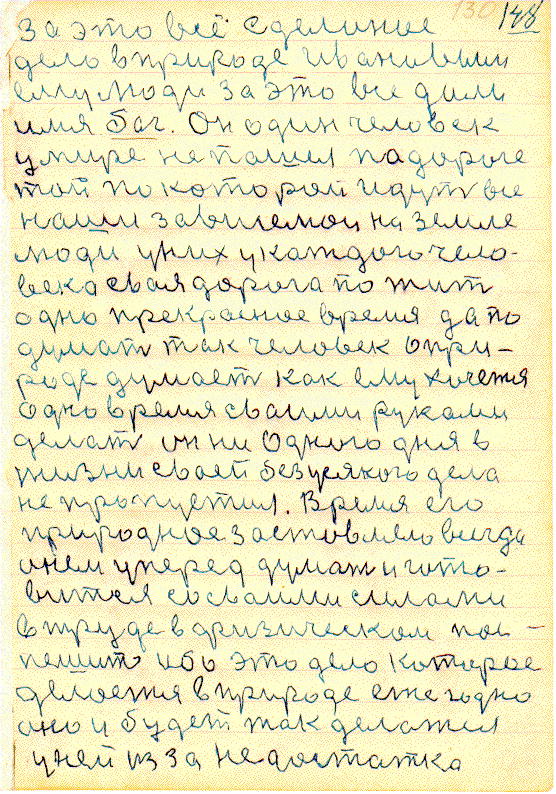 130 148
За это всё сделиное
дело в природе Ивановым
ему люди за это все дали
имя бог. Он один человек
у мире не пашел па дороге
той по которой идут все
наши зависемои на земле
люди у них у каждого чело-
века своя дорога по жит
одно прекрасное время да по
думат так человек о при-
роде думает как ему хочется
одно время своими руками
делат он ни одного дня в
жизни своей без усякого дела
не пропустил. Время его
природное заставляло всегда
о нём уперед думат и гото-
вится со своими силами
в труде в физическом
пешит ибо это дело которое
делоется в природе еже годно
оно и будет так делатся
у ней из за недостатка